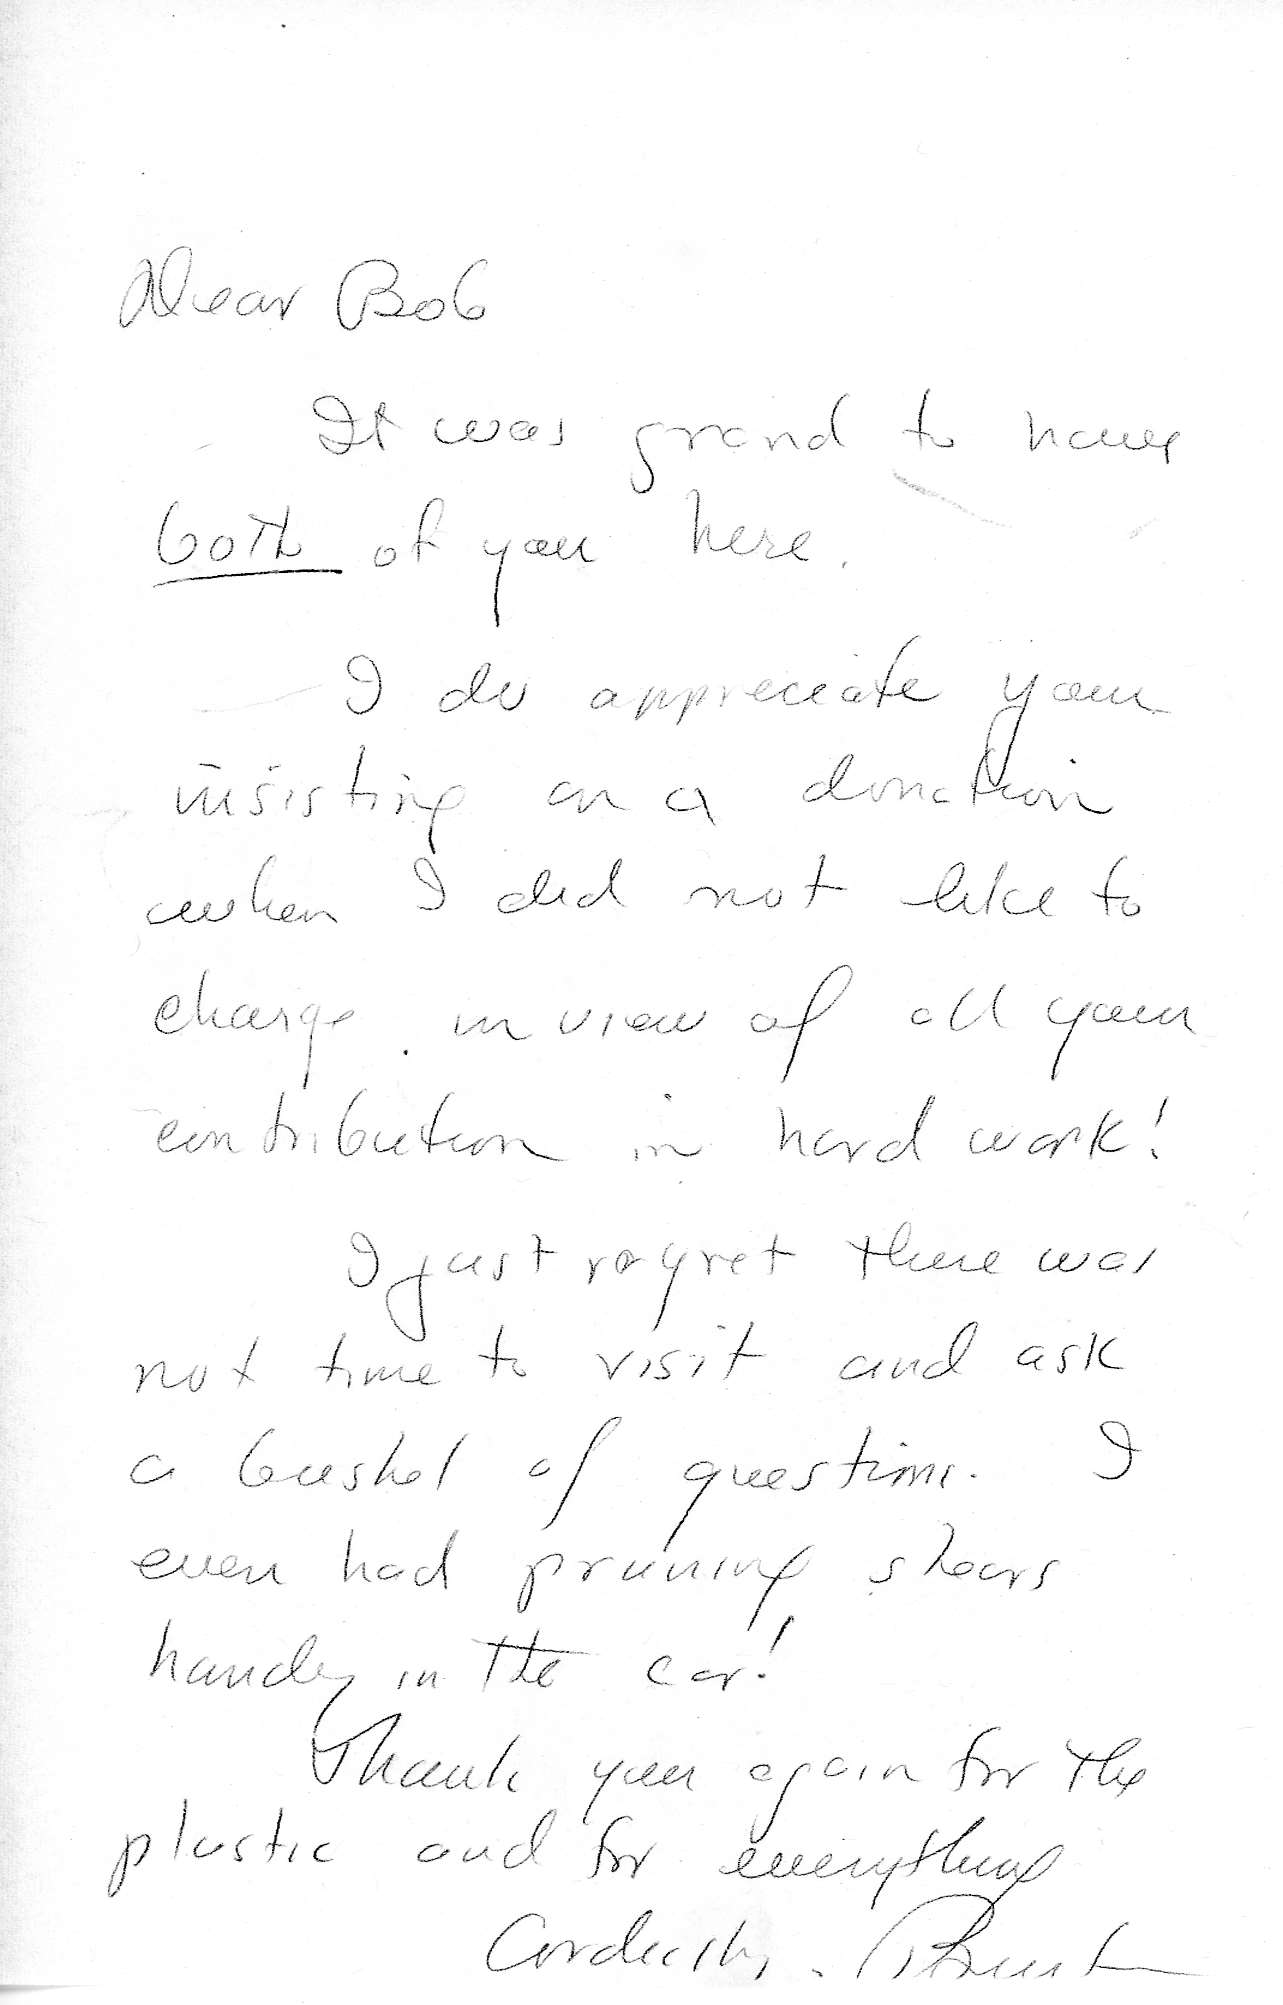 Dear Bob
It was grand to have
both of you here.
I do appreciate your
insisting on a donation
when I did not like to
charge in view of all your
contribution in hard work!
I just regret there was
not time to visit and ask
a bushel of questions. I
even had pruning shears
handy in the car!
Thank you again for the
plastic and for everything
Cordially,